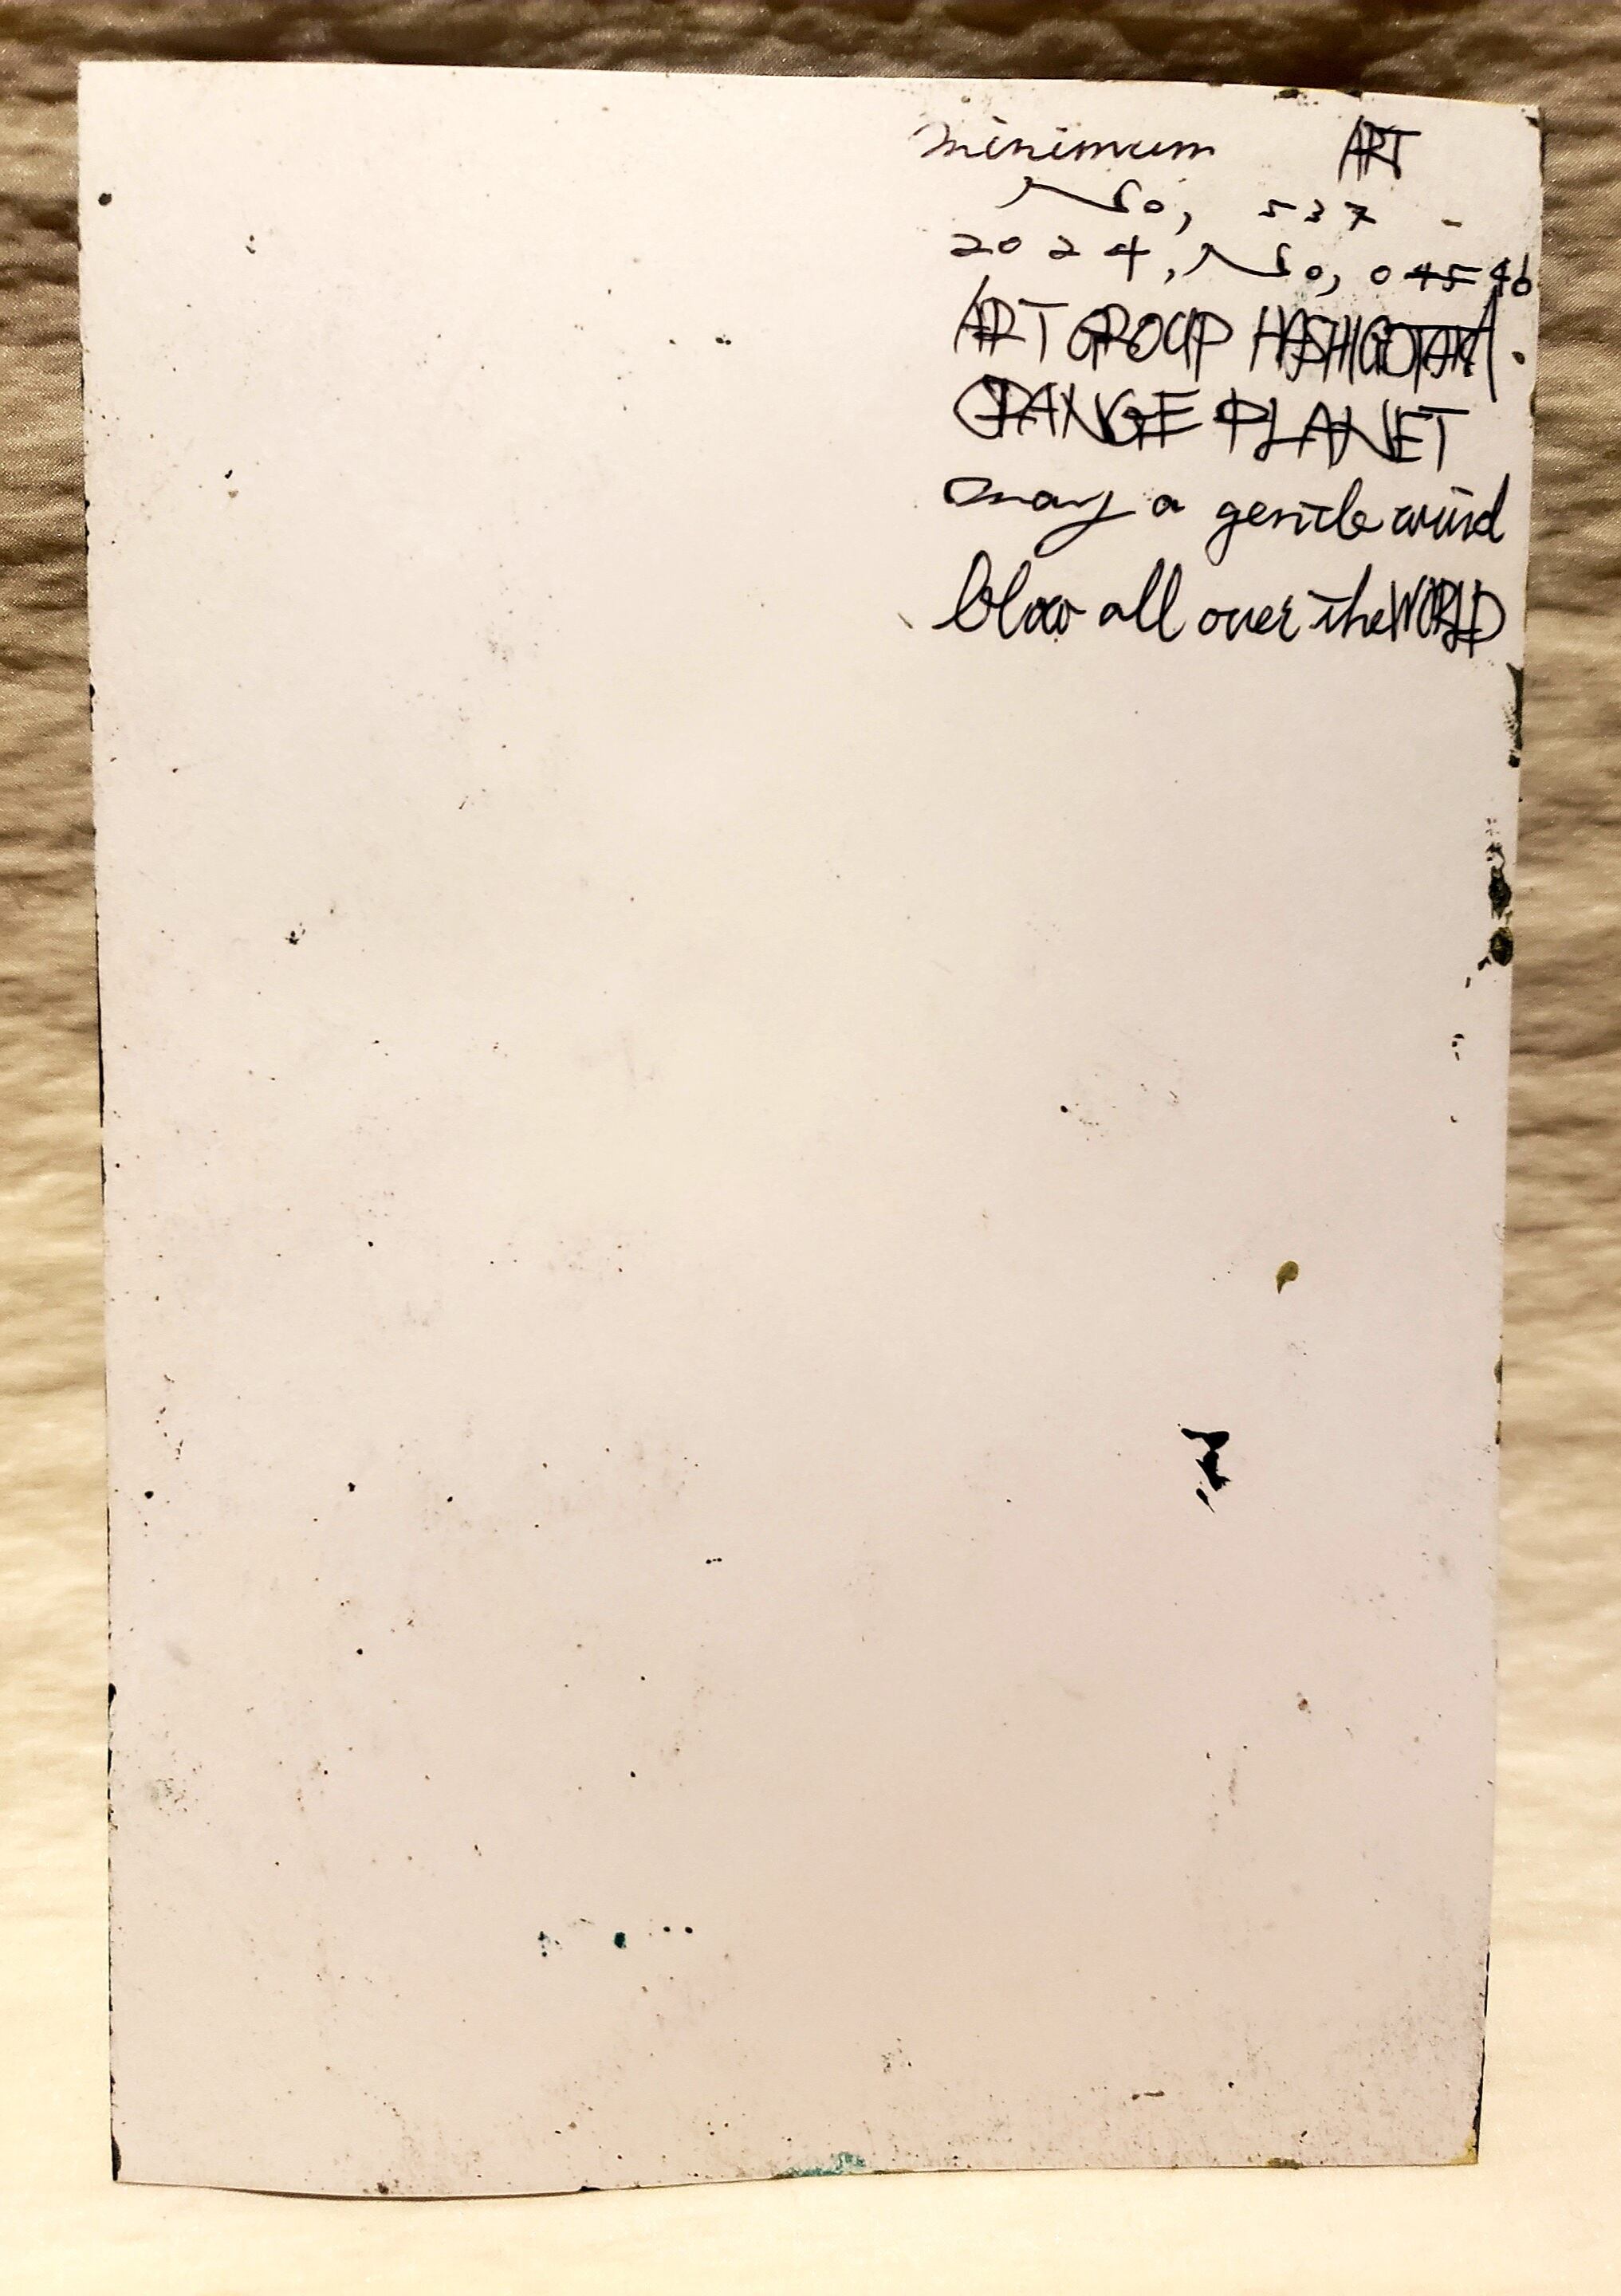 minimum ART
No, 537
2024, No, 04546
ART GROUP HASHIGOTAKA
ORANGE PLANET
may a gentle wind
blow all over the WORLD